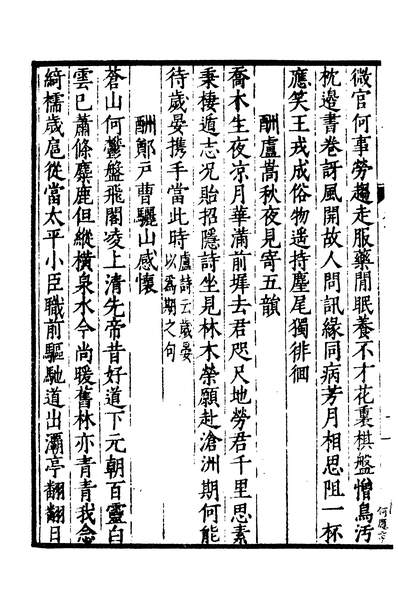 微官何事勞趨走服藥閒眠養不才花裏棋盤憎鳥汚
枕邊書卷訝風開故人問訊緣同病芳月相思阻一杯
應笑王戎成俗物遙持麈尾獨徘徊
酬盧嵩秋夜見寄五韻
喬木生夜凉月華滿前墀去君咫尺地勞君千里思素
秉棲遁志況貽招隱詩坐見林木榮願赴滄洲期何能
待歲晏携手當此時盧詩云歲晏以爲期之句
酬鄭户曹驪山感懷
蒼山何鬱盤飛閣凌上清先帝昔好道下元朝百靈白
雲已蕭條麋鹿但縱橫泉水今尚暖舊林亦青青我念
綺襦歲扈從當太平小臣職前驅馳道出灞亭翻翻日